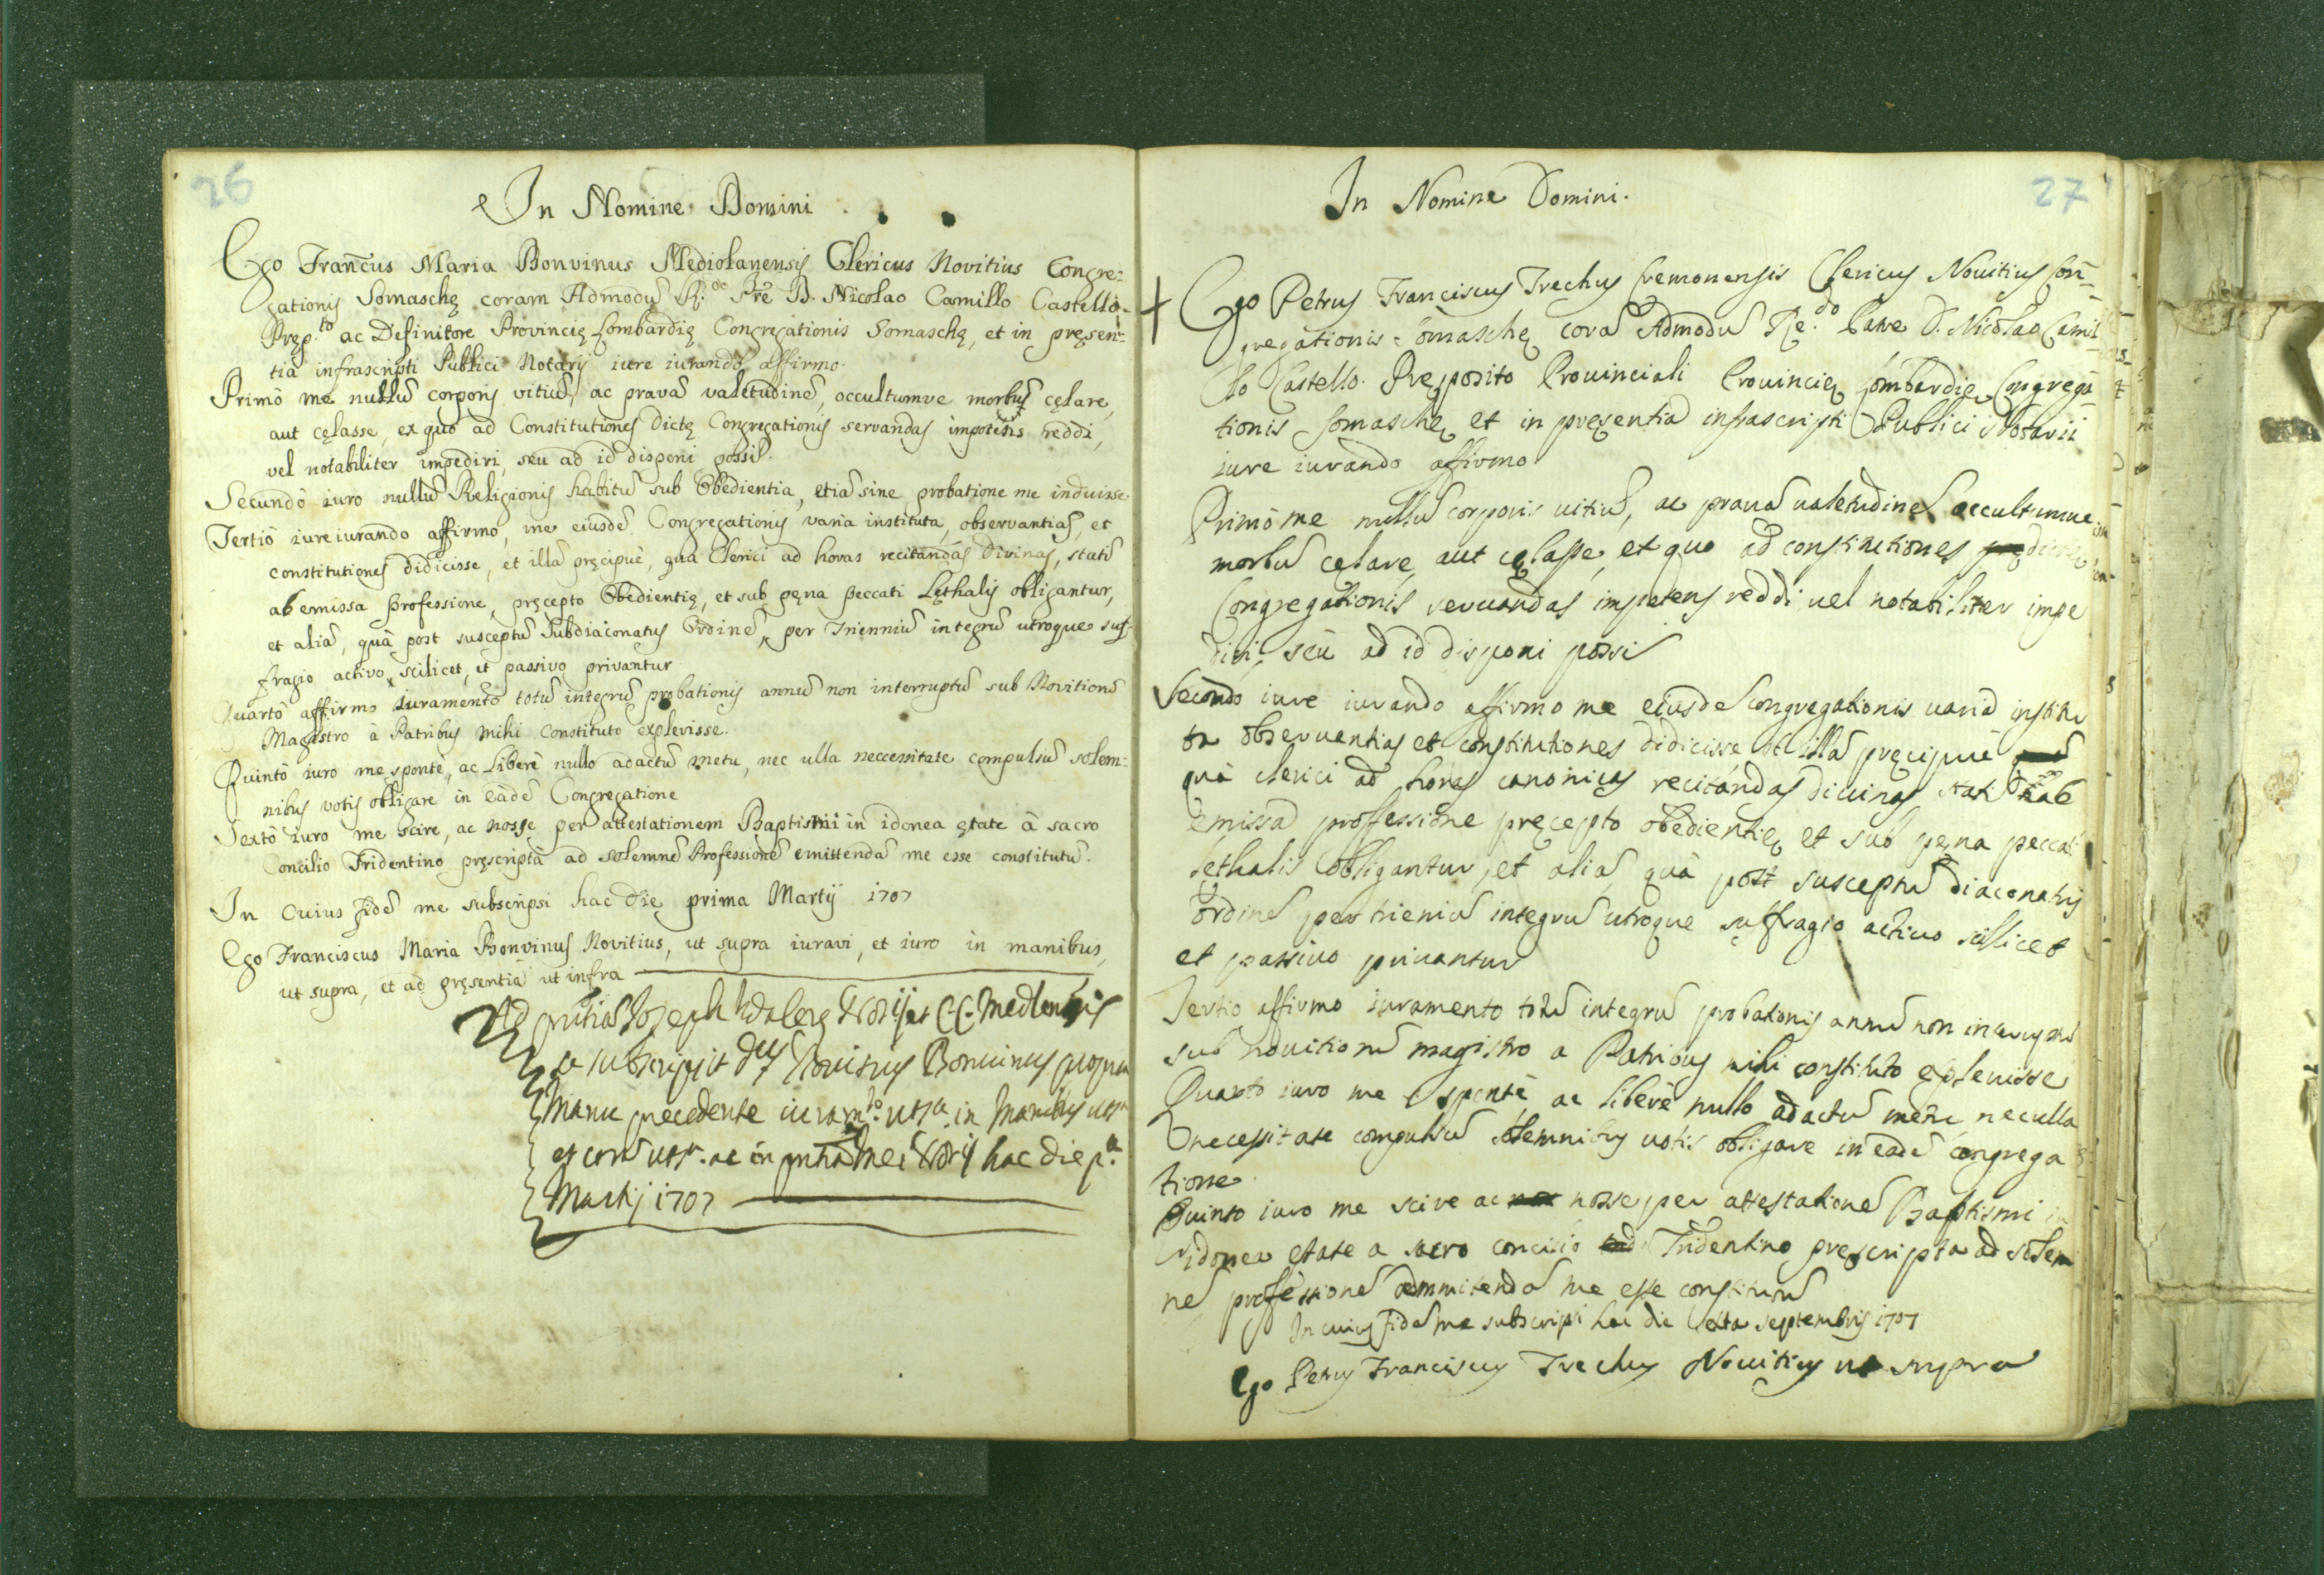 26
In Nomine Domini
Ego Franc̄us Maria Bonvinus Mediolanensis Clericus Novitius Congre:
gationis Somaschę coram Admodū R.do Prē D. Nicolao Camillo Castello
Pręp.to ac Definitore Provincię Lombardię Congregationis Somaschę, et in pręsen:
tia infrascripti Publici Notarij iure iurando affirmo.
Primò me nullū corporis vitiū, ac pravā valetudinē, occultumve morbū cęlare,
aut cęlasse, ex quo ad Constitutiones Dictę Congregationis servandas impotens reddi,
vel notabiliter impediri, seu ad id disponi possī.
Secundò iuro nullū Religionis habitū sub Obedientia, etiā sine probatione me induisse.
Tertiò iure iurando affirmo, me eiusdē Congregationis varia instituta, observantias, et
constitutiones didicisse, et illā pręcipuè, qua Clerici ad horas recitandas Divinas, statī
ab emissa professione, pręcepto Obedientię, et sub pęna peccati Lęthalis obligantur,
et aliā, quà post susceptū Subdiaconatus Ordinē, per Trienniū integrū utroque suf:
fragio activo, scilicet, et passivo privantur.
Quartò affirmo iuramento totū integrū probationis annū non interruptū sub Novitiorū
Magistro à Patribus mihi constituto explevisse.
Quintò iuro me spontè, ac liberè nullo adactū metu, nec ulla neccessitate compulsū solem:
nibus votis obligare in eādē Congregatione
Sextò iuro me scire, ac nosse per attestationem Baptismi in idonea ętate à sacro
Concilio Tridentino pręscripta ad solemnē Professionē emittendā me esse constitutū.
In Cuius fidē me subscripsi hac die prima Martij 1707
Ego Franciscus Maria Bonvinus Novitius, ut supra iuravi, et iuro in manibus,
ut supra, et ad pręsentiā ut infra
Ad pntiā Joseph
se subscripsit Dūs Novitius Bonvinus propria
Manu precedente iuram.to ut sa. in Manibus ut sa
et corā ut sa. ac in pntiā Mei Norij hac die p.a
Martij 1707
27
In Nomine Domini.
Ego Petrus Franciscus Trechus Cremonensis Clericus Nouitius Con=
gregationis Somaschę corā Admodū Re.do Patre D. Nicolao Camil
lo Castello Pręposito Prouinciali Prouincię Lombardię Congrega
tionis Somaschę et in pręsentiā infrascripti Publici Notarii
iure iurando affirmo
Primò me nullū corporis uitiū, ac prauā ualetudinē occultumue
morbū cęlare, aut cęlasse, et quo ad constitutiones dictę
Congregationis seruandas impotens reddi uel notabiliter impe
diri, seu ad id disponi possī
Secondo iure iurando affirmo me eiusdē congregationis uaria institu
ta obseruantias et constitutiones didicisse, et illā pręcipuè
quà clerici ad horas canonicas recitandas diuinas statī ab
emissa professione pręcepto obedientię et sub pęna peccati
lethalis obligantur, et aliā, quà post susceptū diaconatus
ordinē per trieniū integrū utroque suffragio actiuo scillicet
et passiuo priuantur
Tertio affirmo iuramento totū integrū probationis annū non interruptū
sub nouitiorū magistro a Patribus mihi constituto expleuisse
Quarto iuro me spontè ac liberè nullo adactū metu, nec ulla
necessitate compulsū solemnibus uotis obligare in eādē congrega
tione.
Quinto iuro me scire ac nosse per attestationē Baptismi in
idonea ętate a sacro concilio Tridentino pręscripta ad solem
nē professionē emmitendā me esse constitutū
In cuius fidē me subscripsi hac die sexta septembris 1707
Ego Petrus Franciscus Trechus Nouitius ut supra